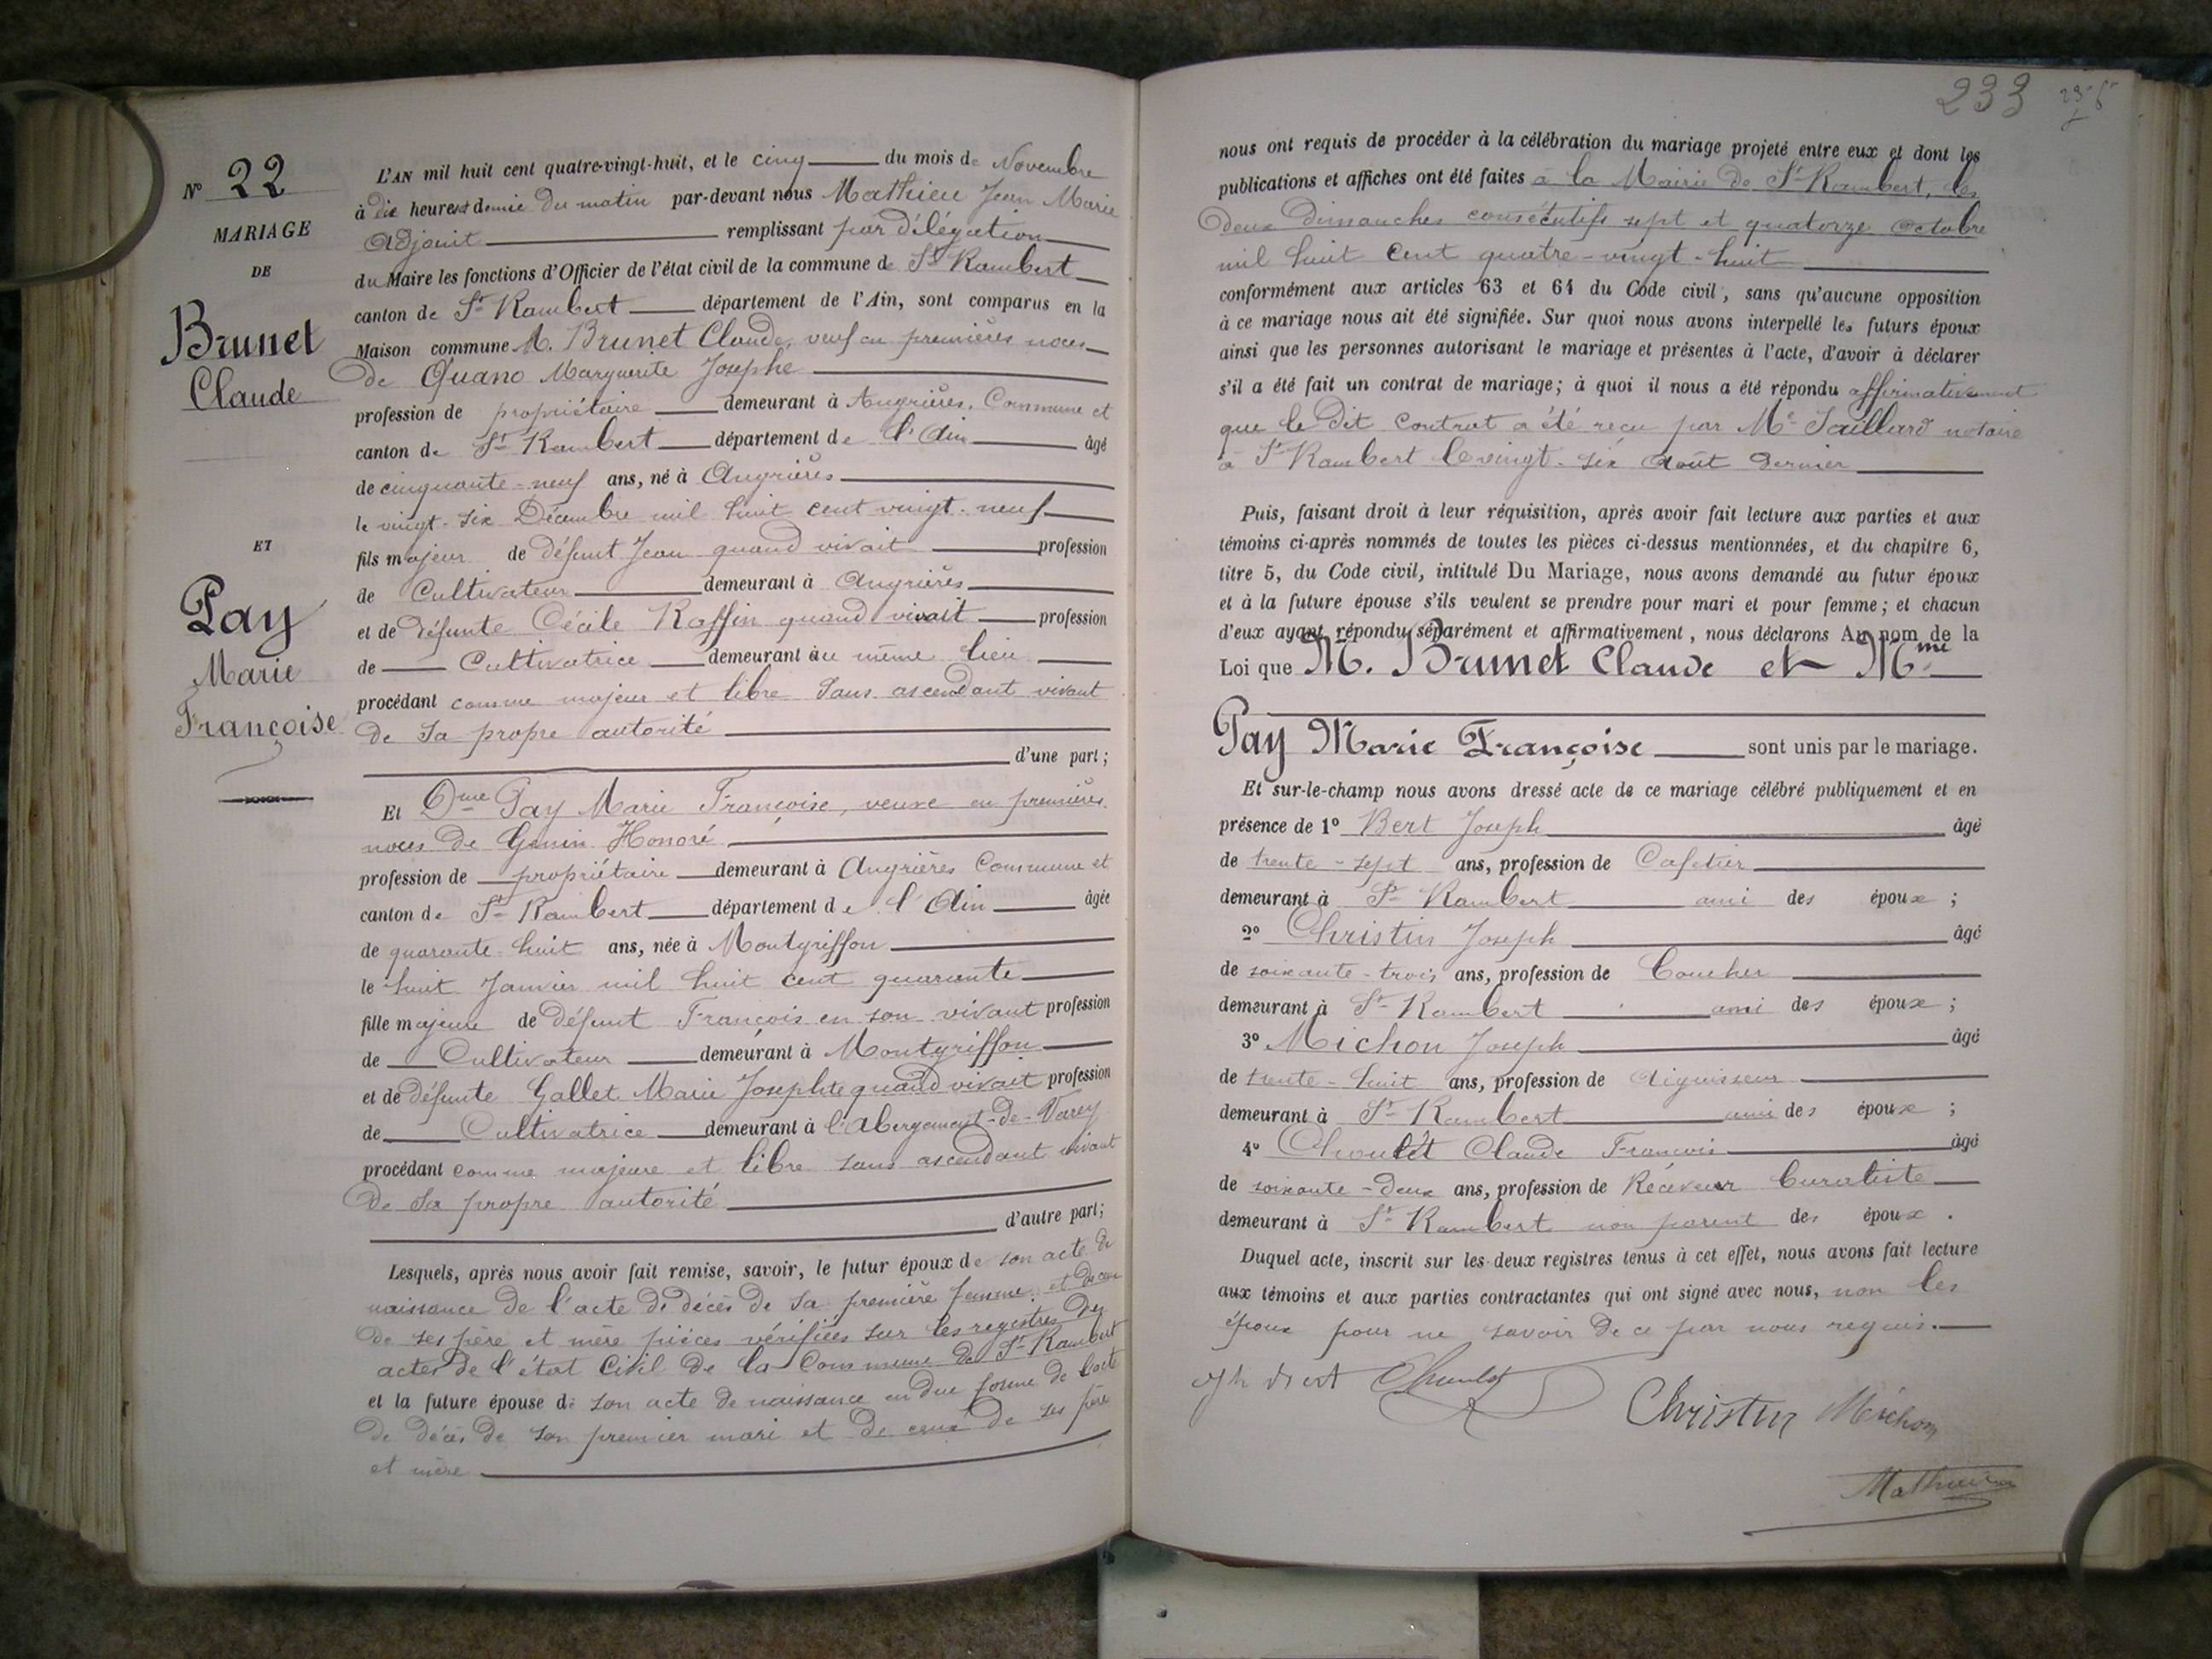 N° 22
MARIAGE
DE
Brunet
Claude
ET
Pay
Marie
Françoise
L'AN mil huit cent quatre-vingt-huit, et le cinq du mois de Novembre
à dix heures et demie du matin par-devant nous Mathieu Jean Marie
Adjoint remplissant par délégation
du Maire les fonctions d'Officier de l'état civil de la commune de St Rambert
canton de St Rambert département de l'Ain, sont comparus en la
Maison commune M. Brunet Claude, veuf en premières noces
de Quano Marguerite Josephe
profession de propriétaire demeurant à Angrières, Commune et
canton de St Rambert département de l'Ain âgé
de cinquante-neuf ans, né à Angrières
le vingt-six Décembre mil huit cent vingt-neuf
fils majeur de défunt Jean quand vivait profession
de Cultivateur demeurant à Angrières
et de défunte Cécile Raffin quand vivait profession
de Cultivatrice demeurant au même lieu
procédant comme majeur et libre sans ascendant vivant
de sa propre autorité
d'une part;
Et Dme Pay Marie Françoise, veuve en premières
noces de Genin Honoré
profession de propriétaire demeurant à Angrières Commune et
canton de St Rambert département de l'Ain âgée
de quarante-huit ans, née à Montgriffon
le huit Janvier mil huit cent quarante
fille majeure de défunt François en son vivant profession
de Cultivateur demeurant à Montgriffon
et de défunte Gallet Marie Josephte quand vivait profession
de Cultivatrice demeurant à l'Abergement-de-Varey
procédant comme majeure et libre sans ascendant vivant
de sa propre autorité
d'autre part;
Lesquels, après nous avoir fait remise, savoir, le futur époux de son acte de
naissance de l'acte de décès de sa première femme et de ceux
de ses père et mère pièces vérifiées sur les registres des
actes de l'état Civil de la Commune de St Rambert
et la future épouse de son acte de naissance en due forme de l'acte
de décès de son premier mari et de ceux de ses père
et mère
233
nous ont requis de procéder à la célébration du mariage projeté entre eux et dont les
publications et affiches ont été faites à la Mairie de St Rambert, les
deux Dimanches consécutifs sept et quatorze octobre
mil huit cent quatre-vingt-huit
conformément aux articles 63 et 64 du Code civil, sans qu'aucune opposition
à ce mariage nous ait été signifiée. Sur quoi nous avons interpellé les futurs époux
ainsi que les personnes autorisant le mariage et présentes à l'acte, d'avoir à déclarer
s'il a été fait un contrat de mariage; à quoi il nous a été répondu affirmativement
que le dit contrat a été reçu par Me Saillard notaire
à St Rambert le vingt-six Août dernier
Puis, faisant droit à leur réquisition, après avoir fait lecture aux parties et aux
témoins ci-après nommés de toutes les pièces ci-dessus mentionnées, et du chapitre 6,
titre 5, du Code civil, intitulé Du Mariage, nous avons demandé au futur époux
et à la future épouse s'ils veulent se prendre pour mari et pour femme; et chacun
d'eux ayant répondu séparément et affirmativement, nous déclarons Au nom de la
Loi que M. Brunet Claude et Mme
Pay Marie Françoise sont unis par le mariage.
Et sur-le-champ nous avons dressé acte de ce mariage célébré publiquement et en
présence de 1° Bert Joseph âgé
de trente-sept ans, profession de Cafetier
demeurant à St Rambert ami des époux;
2° Christin Joseph âgé
de soixante-trois ans, profession de Boucher
demeurant à St Rambert ami des époux;
3° Michon Joseph âgé
de trente-huit ans, profession de aiguiseur
demeurant à St Rambert ami des époux;
4° Choulet Claude François âgé
de soixante-deux ans, profession de Receveur Buraliste
demeurant à St Rambert non parent des époux.
Duquel acte, inscrit sur les deux registres tenus à cet effet, nous avons fait lecture
aux témoins et aux parties contractantes qui ont signé avec nous, non les
époux pour ne savoir de ce par nous requis.
Jh Bert Choulet
Christin Michon
Mathieu